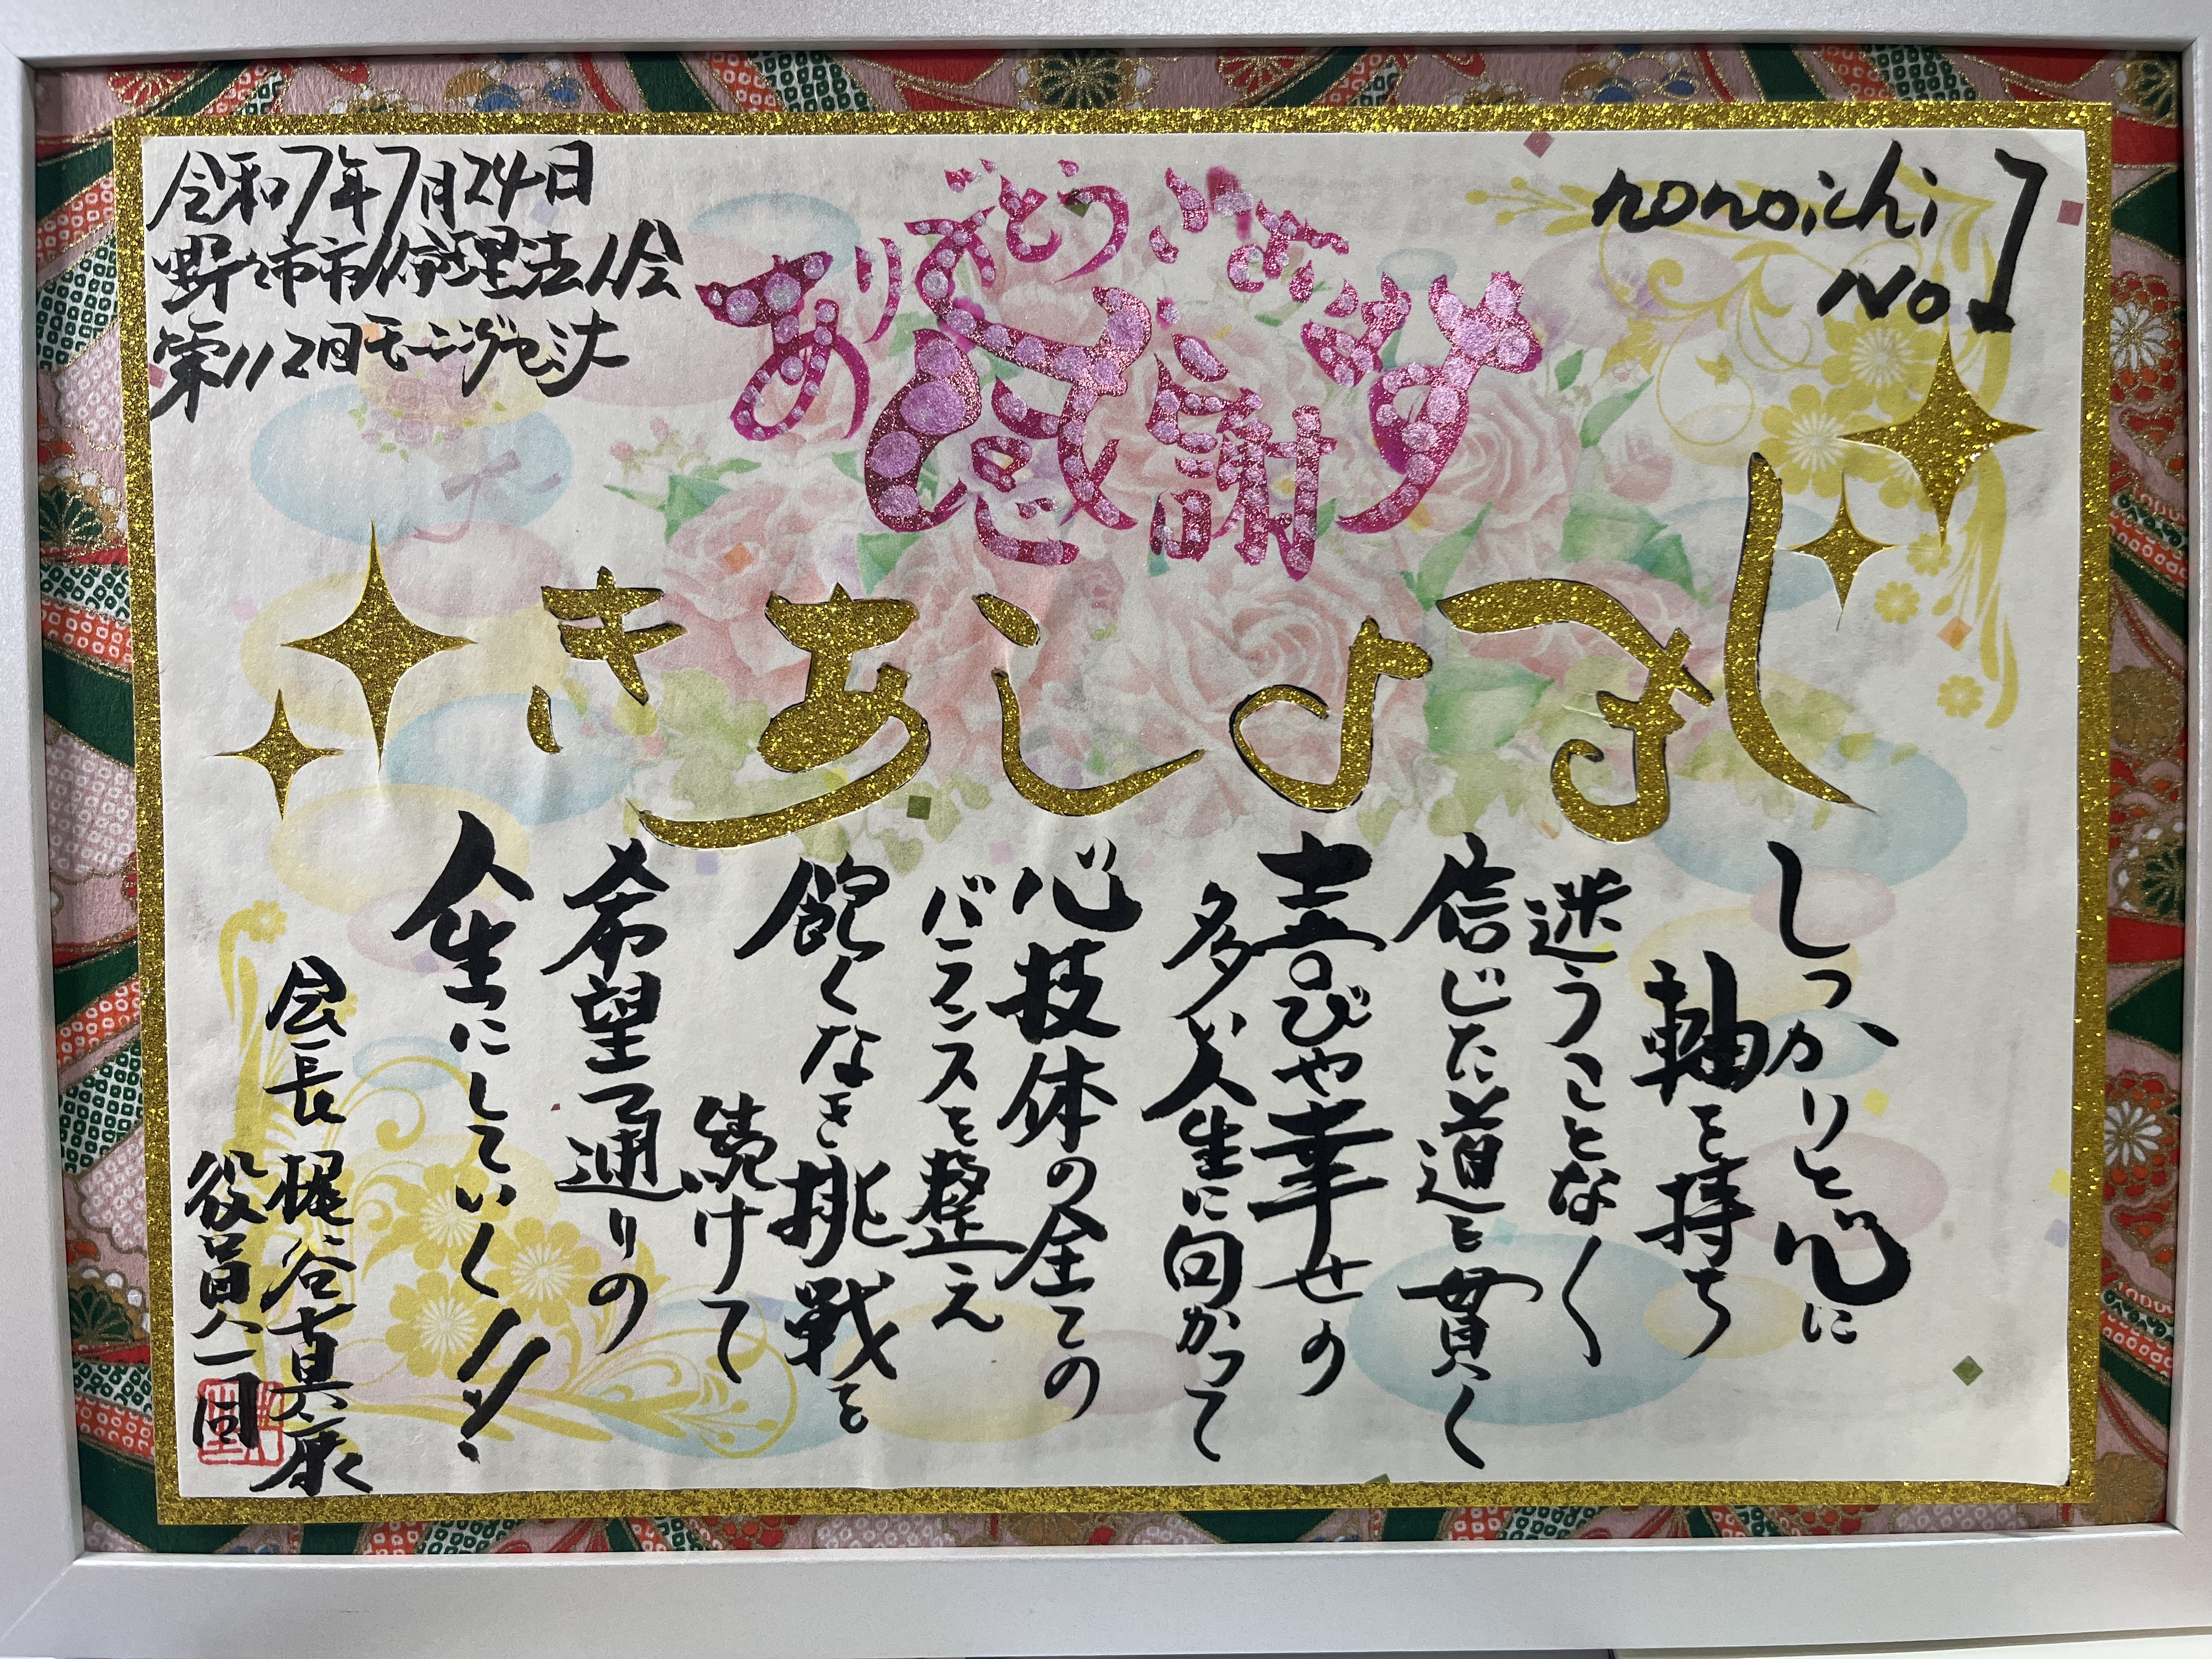 令和7年7月24日
野々市市倫理法人会
第112回モーニングセミナー
ありがとうございます
感謝
nonoichi
No.1
しまよしあき
しっかりと心に
軸を持ち
迷うことなく
信じた道を貫く
喜びや幸せの
多い人生に向かって
心技体の全ての
バランスを整え
飽くなき挑戦を
続けて
希望通りの
人生にしていく!!
会長 梶谷真康
役員一同